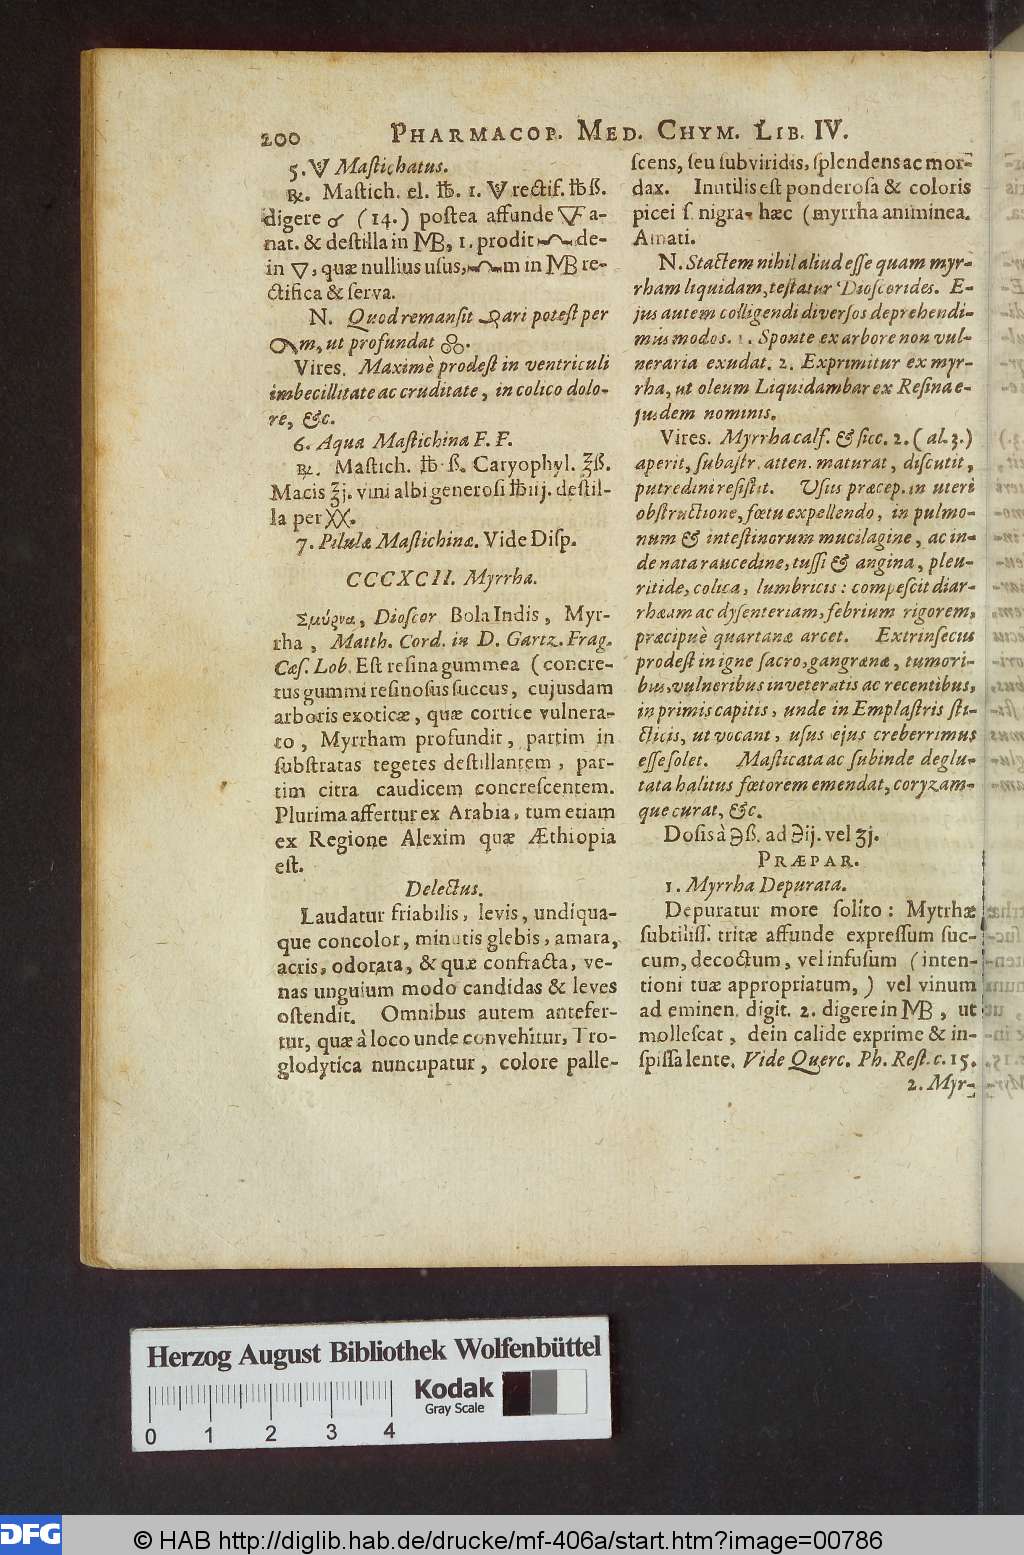 200 PHARMACOP. MED. CHYM. LIB. IV.
5. Maſtichatus.
℞. Maſtich. el. ℔. 1. rectif. ℔ß.
digere ♂ (14.) poſtea affunde ▽ a-
nat. & deſtilla in MB, 1. prodit de-
in ▽, quæ nullius uſus, m in MB re-
ctifica & ſerva.
N. Quod remanſit ari poteſt per
m, ut profundat
Vires. Maximè prodeſt in ventriculi
imbecillitate ac cruditate, in colico dolo-
re, &c.
6. Aqua Maſtichina F. F.
℞. Maſtich. ℔. ß. Caryophyl. ℥ß.
Macis ℥j. vini albi generoſi ℔iij. deſtil-
la per
7. Pilulæ Maſtichinæ. Vide Diſp.
CCCXCII. Myrrha.
Σμύρνα, Dioſcor Bola Indis, Myr-
rha, Matth. Cord. in D. Gartz. Frag.
Cæſ. Lob. Eſt reſina gummea (concre-
tus gummi reſinoſus ſuccus, cujusdam
arboris exoticæ, quæ cortice vulnera-
to, Myrrham profundit, partim in
ſubſtratas tegetes deſtillantem, par-
tim citra caudicem concreſcentem.
Plurima affertur ex Arabia, tum etiam
ex Regione Alexim quæ Æthiopia
eſt.
Delectus.
Laudatur friabilis, levis, undiqua-
que concolor, minutis glebis, amara,
acris, odorata, & quæ confracta, ve-
nas unguium modo candidas & leves
oſtendit. Omnibus autem antefer-
tur, quæ à loco unde convehitur, Tro-
glodytica nuncupatur, colore palle-
ſcens, ſeu ſubviridis, ſplendens ac mor-
dax. Inutilis eſt ponderoſa & coloris
picei ſ. nigra, hæc (myrrha animinea.
Amati.
N. Stactem nihil aliud eſſe quam myr-
rham liquidam, teſtatur Dioſcorides. E-
jus autem colligendi diverſos deprehendi-
mus modos. 1. Sponte ex arbore non vul-
neraria exudat. 2. Exprimitur ex myr-
rha, ut oleum Liquidambar ex Reſina e-
jusdem nominis.
Vires. Myrrha calf. & ſicc. 2. (al. 3.)
aperit, ſubaſtr. atten. maturat, diſcutit,
putredini reſiſtit. Uſus præcep. in uteri
obſtructione, fœtu expellendo, in pulmo-
num & inteſtinorum mucilagine, ac in-
de nata raucedine, tuſſi & angina, pleu-
ritide, colica, lumbricis: compeſcit diar-
rhæam ac dyſenteriam, febrium rigorem,
præcipuè quartanæ arcet. Extrinſecus
prodeſt in igne ſacro, gangræna, tumori-
bus, vulneribus inveteratis ac recentibus,
in primis capitis, unde in Emplaſtris ſti-
cticis, ut vocant, uſus ejus creberrimus
eſſe ſolet. Maſticata ac ſubinde deglu-
tata halitus fœtorem emendat, coryzam-
que curat, &c.
Doſis à ℈ß. ad ℈ij. vel ʒj.
PRÆPAR.
1. Myrrha Depurata.
Depuratur more ſolito: Myrrhæ
ſubtiliſſ. tritæ affunde expreſſum ſuc-
cum, decoctum, vel infuſum (inten-
tioni tuæ appropriatum,) vel vinum
ad eminen. digit. 2. digere in MB, ut
molleſcat, dein calide exprime & in-
ſpiſſa lente. Vide Querc. Ph. Reſt. c. 15.
2. Myr-
Herzog August Bibliothek Wolfenbüttel
Kodak
Gray Scale
0 1 2 3 4
DFG
© HAB http://diglib.hab.de/drucke/mf-406a/start.htm?image=00786